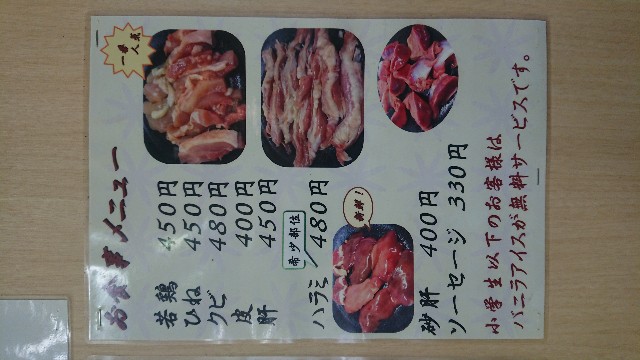 お食事メニュー
一番人気
若鶏 450円
ひね 450円
クビ 480円
皮 400円
肝 450円
希少部位
ハラミ 480円
新鮮!
砂肝 400円
ソーセージ 330円
小学生以下のお客様は
バニラアイスが無料サービスです。